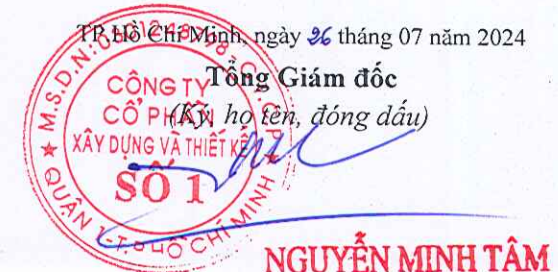 TP.Hồ Chí Minh, ngày 26 tháng 07 năm 2024
Tổng Giám đốc
(Ký, họ tên, đóng dấu)
CÔNG TY
CỔ PHẦN
XÂY DỰNG VÀ THIẾT KẾ
SỐ 1
QUẬN 1-T.P HỒ CHÍ MINH
NGUYỄN MINH TÂM